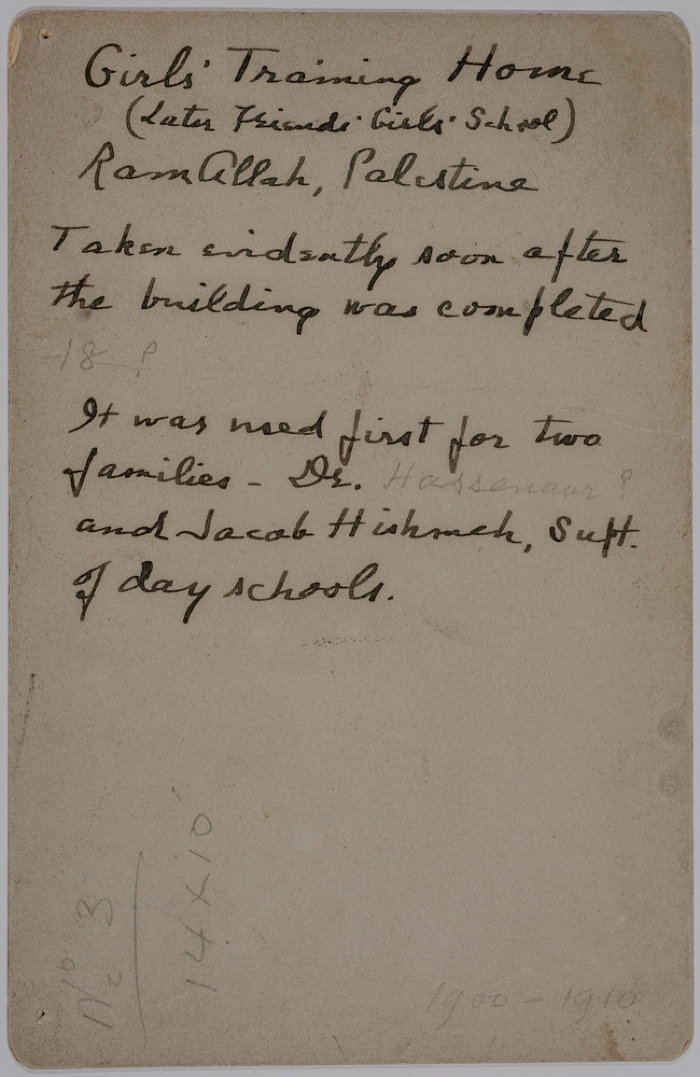 Girls' Training Home
(Later Friends' Girls' School)
Ram Allah, Palestine
Taken evidently soon after
the building was completed
18 ?
It was used first for two
families - Dr. Hassenaur ?
and Jacob Hishmeh, Supt.
of day schools.
14 x 10
No 3
1900 - 1910